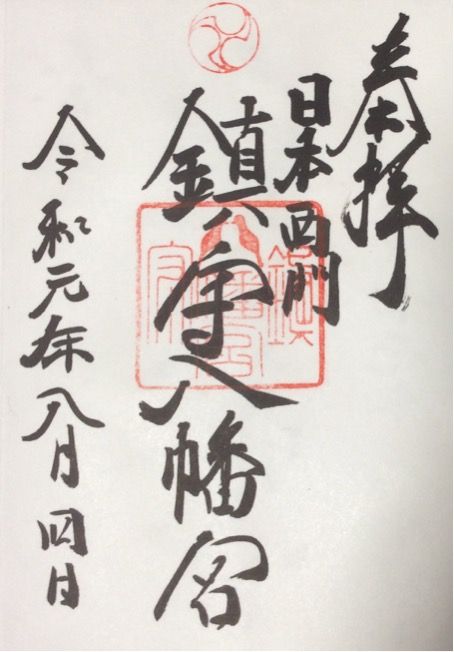 奉拝
日本西門
鎮守八幡宮
令和元年八月四日